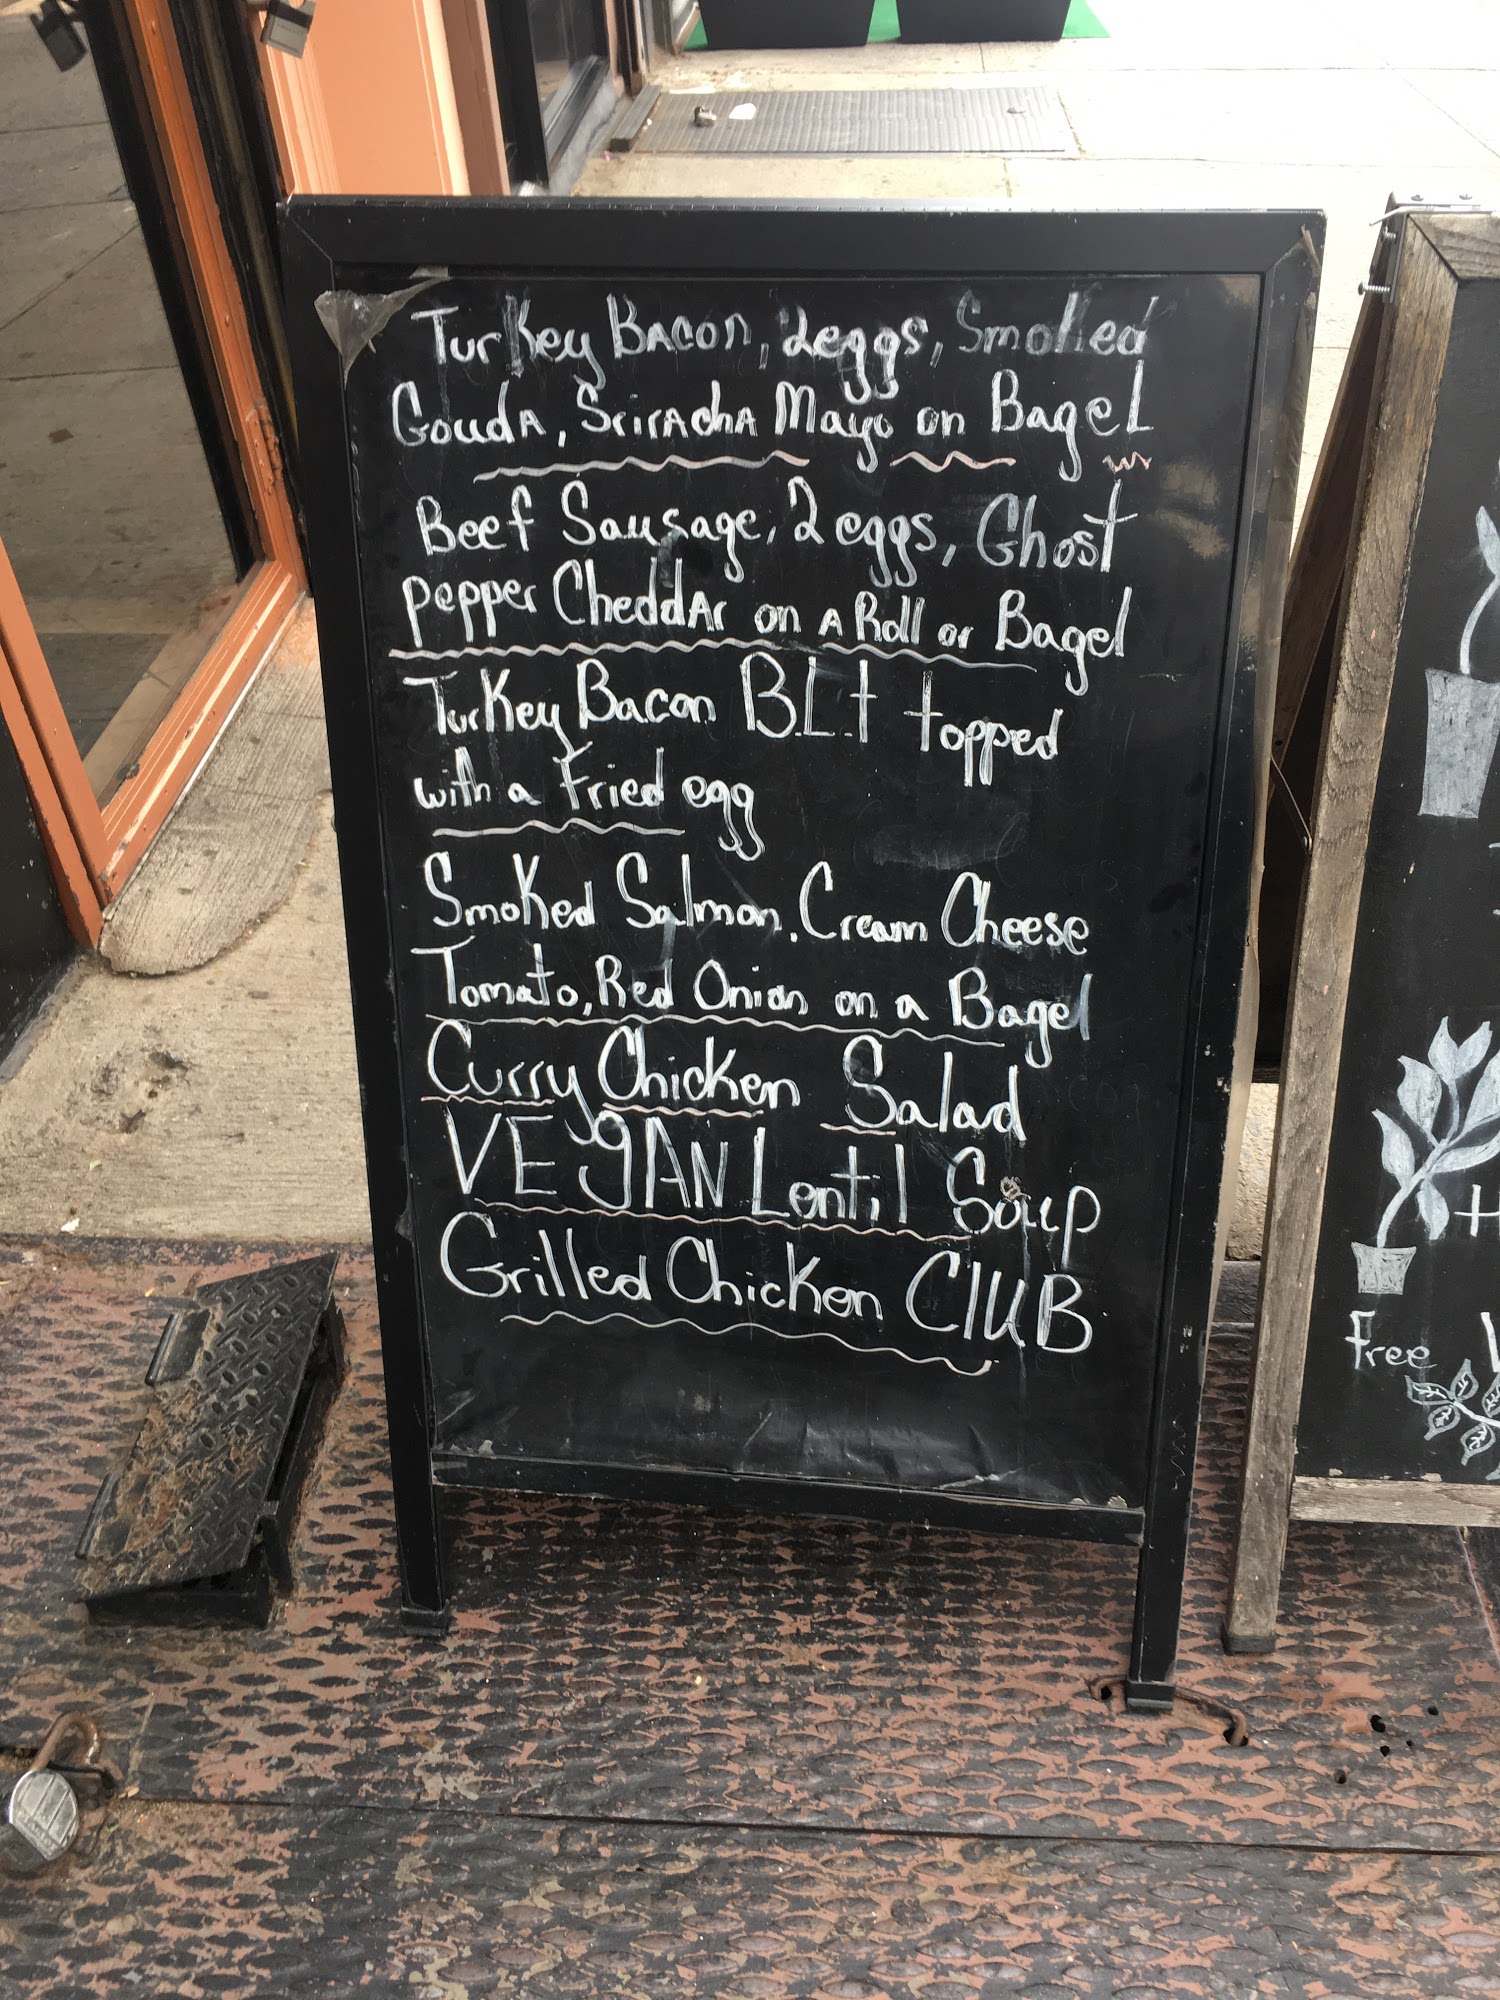 Turkey Bacon, 2eggs, Smoked
Gouda, Sriracha Mayo on Bagel
Beef Sausage, 2 eggs, Ghost
pepper Cheddar on a Roll or Bagel
Turkey Bacon B.L.t topped
with a Fried egg
Smoked Salmon, Cream Cheese
Tomato, Red Onion on a Bagel
Curry Chicken Salad
VEgAN Lentil Soup
Grilled Chicken ClUB
Free